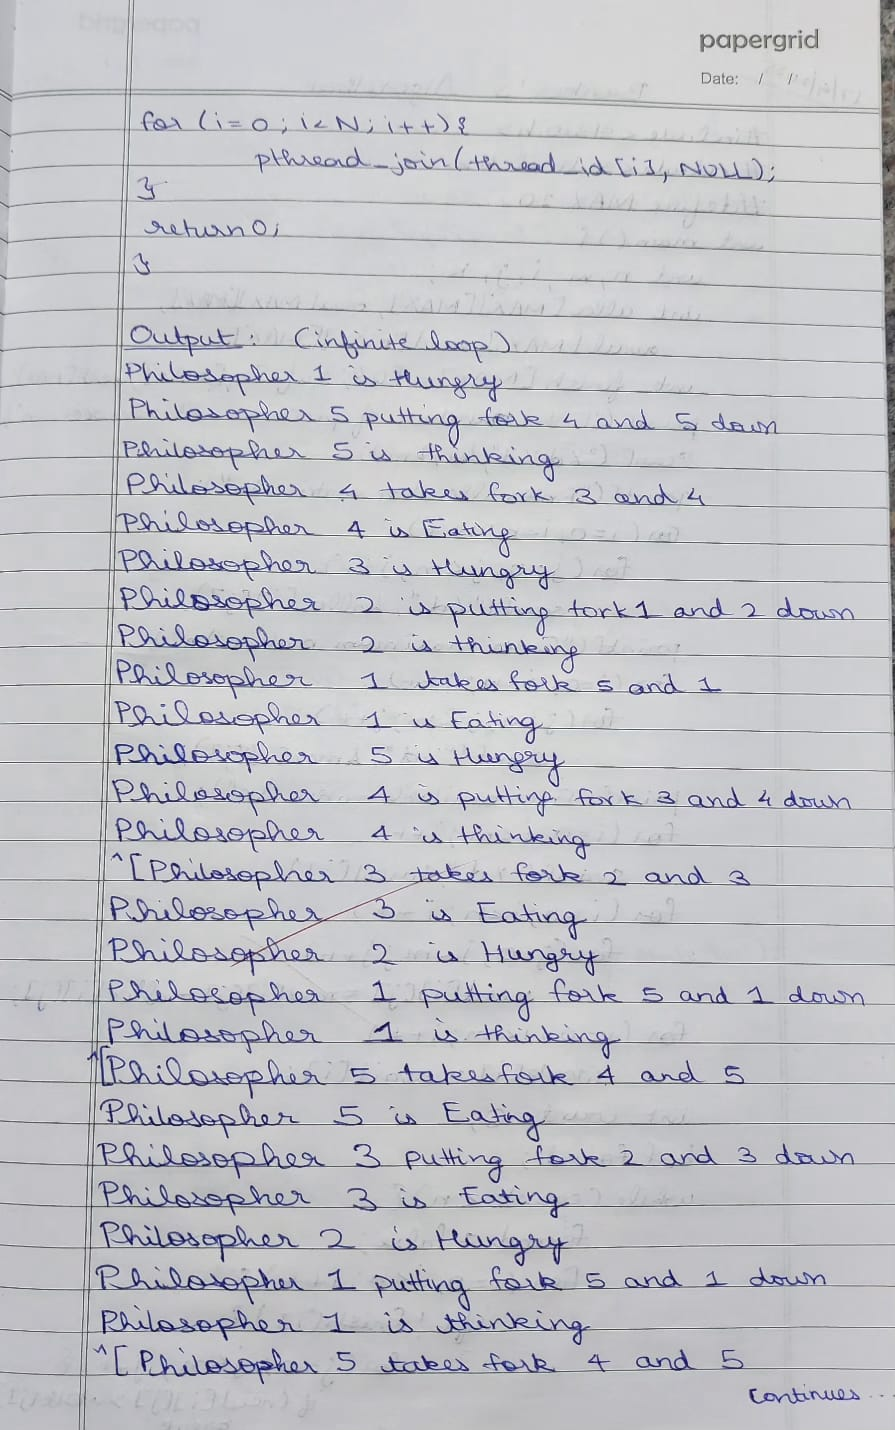 papergrid
Date: / /
for (i=0; i<N; i++){
pthread_join(thread_id[i], NULL);
}
return 0;
}
Output: (infinite loop)
Philosopher 1 is Hungry
Philosopher 5 putting fork 4 and 5 down
Philosopher 5 is thinking
Philosopher 4 takes fork 3 and 4
Philosopher 4 is Eating
Philosopher 3 is Hungry
Philosopher 2 is putting fork 1 and 2 down
Philosopher 2 is thinking
Philosopher 1 takes fork 5 and 1
Philosopher 1 is Eating
Philosopher 5 is Hungry
Philosopher 4 is putting fork 3 and 4 down
Philosopher 4 is thinking
^[Philosopher 3 takes fork 2 and 3
Philosopher 3 is Eating
Philosopher 2 is Hungry
Philosopher 1 putting fork 5 and 1 down
Philosopher 1 is thinking
^[Philosopher 5 takes fork 4 and 5
Philosopher 5 is Eating
Philosopher 3 putting fork 2 and 3 down
Philosopher 3 is Eating
Philosopher 2 is Hungry
Philosopher 1 putting fork 5 and 1 down
Philosopher 1 is thinking
^[Philosopher 5 takes fork 4 and 5
Continues...